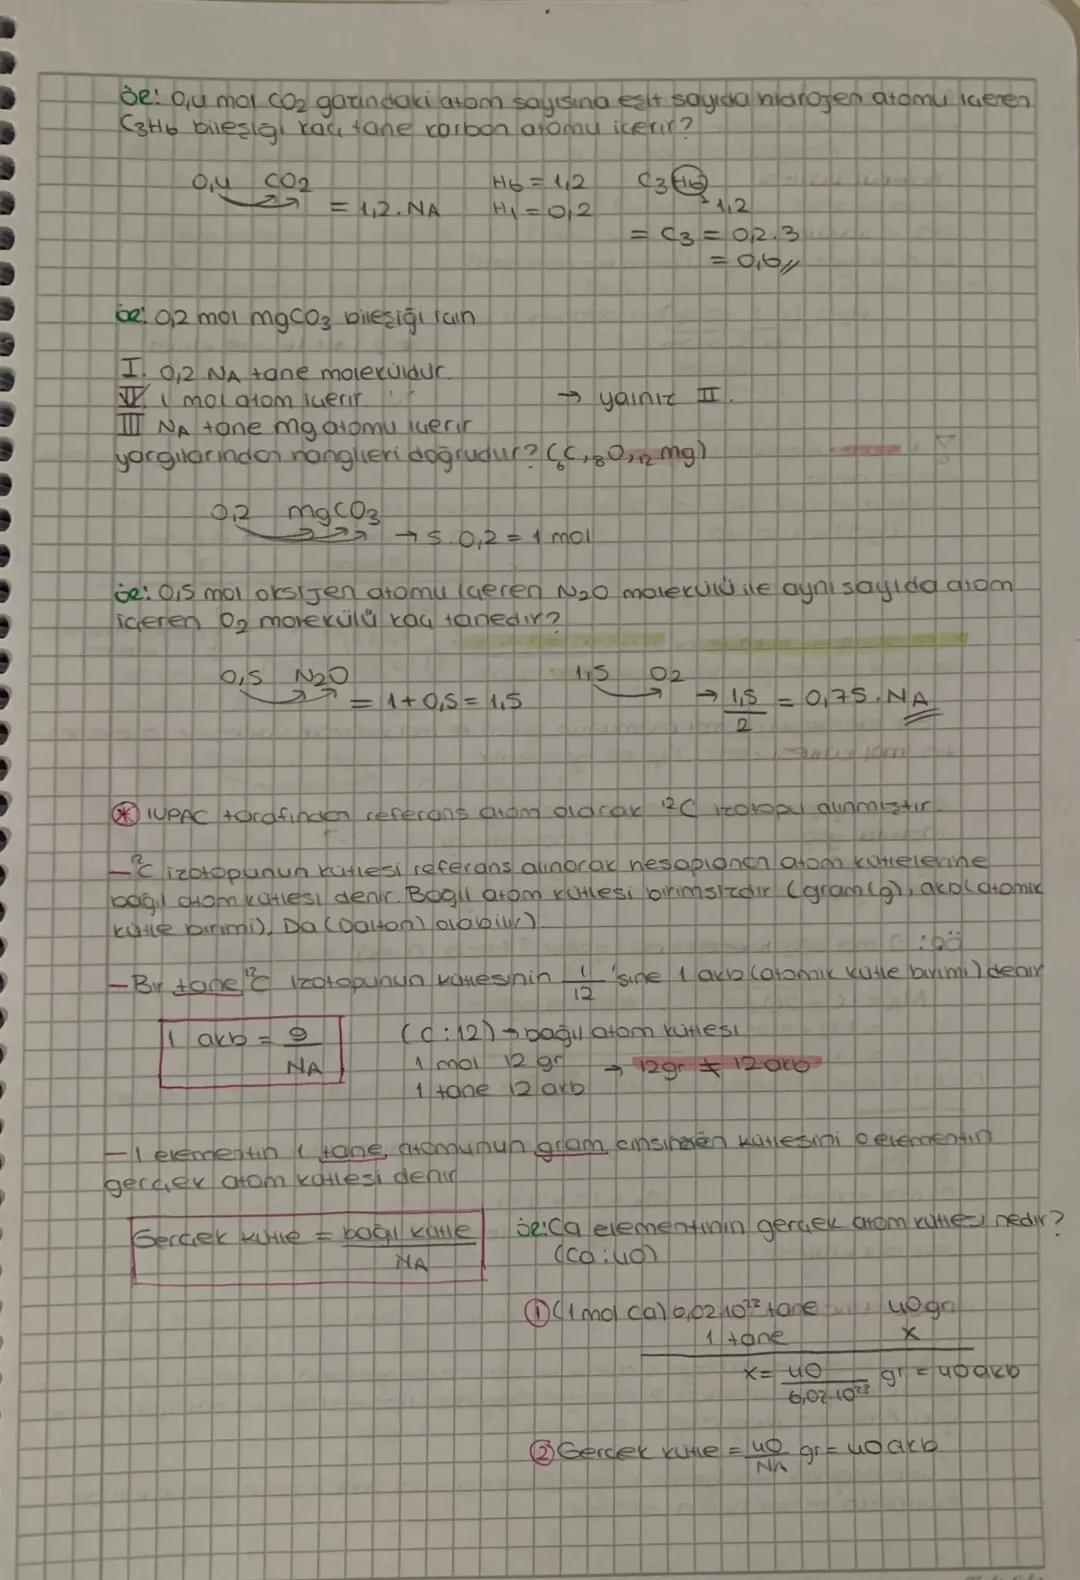 ör: 0,4 mol CO2 gazındaki atom sayısına eşit sayıda hidrojen atomu içeren
C3H6 bileşiği kaç tane karbon atomu içerir?
0,4 CO2
= 1,2.NA
H6 = 1,2
H1 = 0,2
C3H6
= 1,2
= C3 = 0,2.3
= 0,6//
ör: 0,2 mol mgCO3 bileşiği için
I. 0,2 NA tane moleküldür.
II. 1 mol atom içerir.
→ yalnız II.
III NA tane mg atomu içerir
yargılarından hangileri doğrudur? (6C, 8O, 12 mg)
0,2 mgCO3
→ 5.0,2 = 1 mol
ör: 0,5 mol oksijen atomu içeren N2O molekülü ile aynı sayıda atom
içeren O2 molekülü kaç tanedir?
0,5 N2O
= 1+0,5 = 1,5
1,5 O2
→ 1,5/2 = 0,75.NA
* IUPAC tarafından referans atom olarak 12C izotopu alınmıştır.
– 12C izotopunun kütlesi referans alınarak hesaplanan atom kütlelerine
bağıl atom kütlesi denir. Bağıl atom kütlesi birimsizdir (gram(g), akb(atomik
kütle birimi), Da (Dalton) olabilir).
– Bir tane 12C izotopunun kütlesinin 1/12 'sine 1 akb (atomik kütle birimi) denir
1 akb = g/NA
(C:12) → bağıl atom kütlesi
1 mol 12 gr
→ 12gr ≠ 12 akb
1 tane 12 akb
– 1 elementin 1 tane atomunun gram cinsinden kütlesini o elementin
gerçek atom kütlesi denir.
Gerçek kütle = bağıl kütle/NA
ör: Ca elementinin gerçek atom kütlesi nedir?
(Ca:40)
① (1 mol Ca) 6,02.10²³ tane 40gr
1 tane x
x = 40/6,02.10²³ gr = 40akb
② Gerçek kütle = 40/NA gr = 40akb